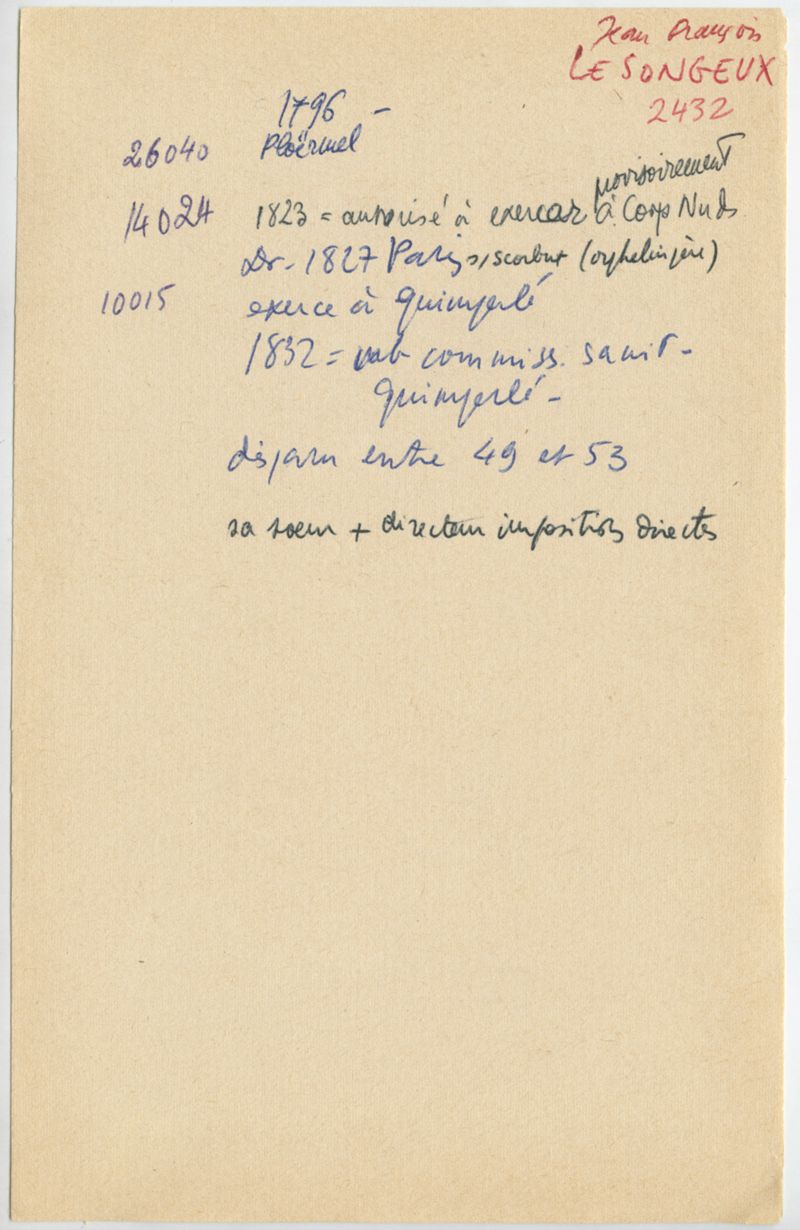 Jean François
LE SONGEUX
2432
1796 -
26040 Ploërmel
provisoirement
14024 1823 = autorisé à exercer à Corps Nuds
Dr. 1827 Paris s/scorbut (orphelin père)
10015 exerce à Quimperlé
1832 = commiss. sanit -
Quimperlé -
disparu entre 49 et 53
sa soeur + directeur impositions directes